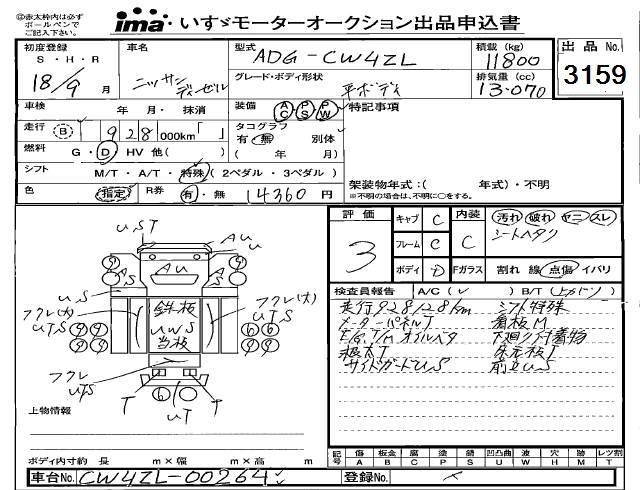 ◎赤太枠内は必ず
ボールペンで
ご記入下さい。
ima・いすゞモーターオークション出品申込書
初度登録
S・H・R
18/9 月
車名
ニッサン
ディーゼル
型式
ADG-CW4ZL
グレード・ボディ形状
平ボディ
積載 (kg)
11800
排気量 (cc)
13.070
出品 No.
3159
車検 年 月・抹消
装備 AC PS PW
特記事項
走行 B 928 000km「 」
タコグラフ
有・無 別体
( 年 月)
燃料 G・D・HV 他( )
シフト M/T・A/T・特殊(2ペダル・3ペダル)
架装物年式:( 年式)・不明
※不明の場合は、不明に○をする。
色 指定 R券 有・無 14360 円
評価
3
キャブ C
フレーム C
ボディ D
内装 C
汚れ 破れ ヤニ スレ
シートヘタリ
Fガラス 割れ 線 点傷 イバリ
検査員報告 A/C( ✓ ) B/T( )
走行928128km シフト特殊
メーターパネルT 看板M
E/G,T/Mオイルベタ 下廻リ付着物
根太T 床元板T
サイドガードUS 前立US
UST
AU
U
AU
AS
AS
US
フクレ(大)
UTS
鉄板
UWS
当板
フクレ(大)
UTS
6
6
フクレ
UTS
T
6
UT
T
上物情報
ボディ内寸約 長 m×幅 m×高 m
記号
傷 A
板金 B
腐 C
塗 P
錆 S
凹凸曲 U
波 W
穴 H
跡 M
レツ割 T
車台No. CW4ZL-00264
登録No.